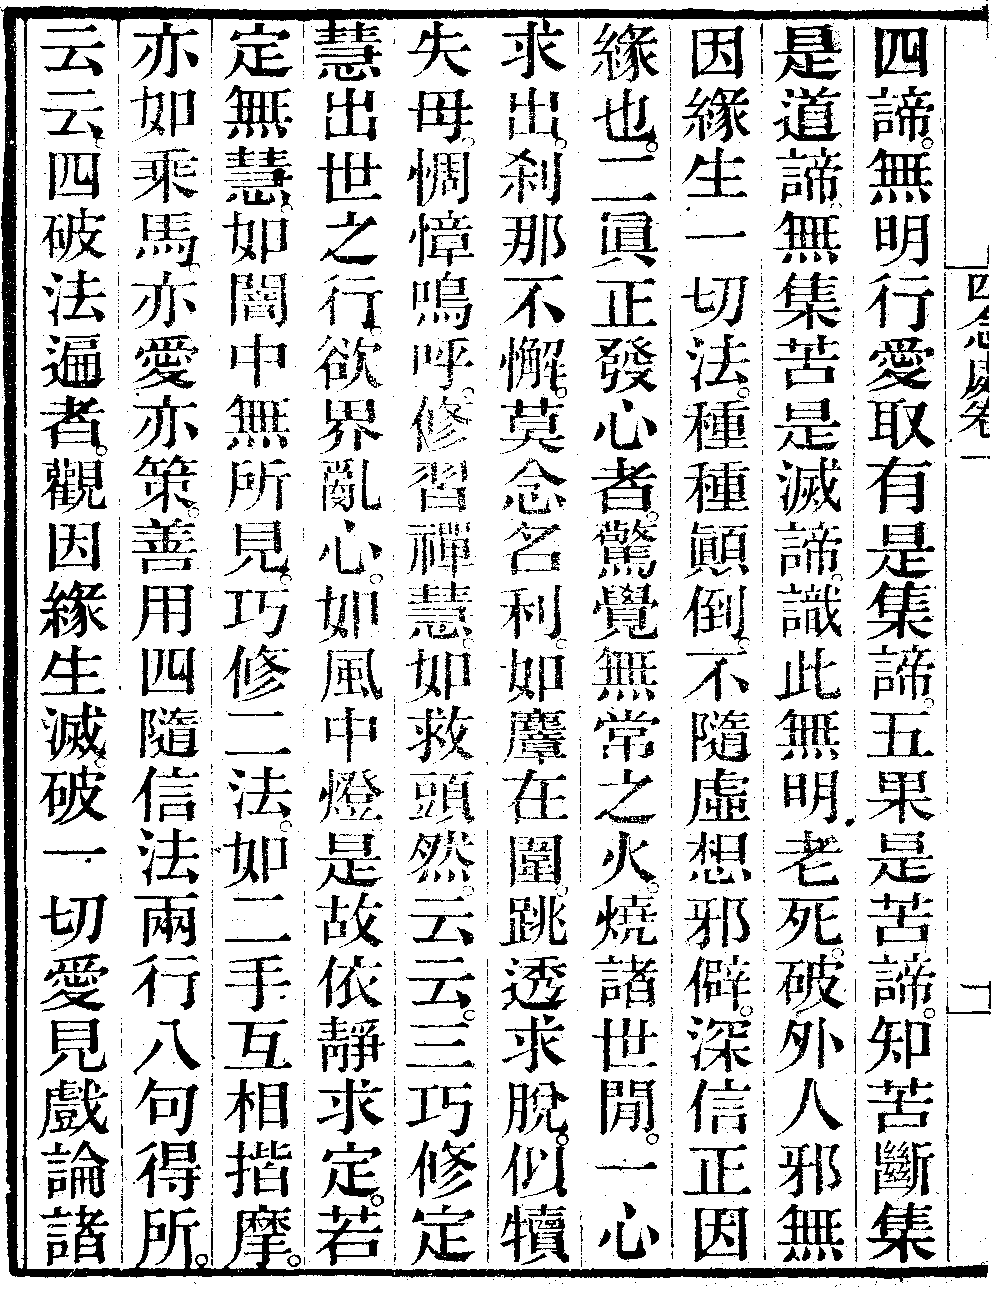 四念處卷一
四諦。無明行愛取有是集諦。五果是苦諦。知苦斷集
是道諦。無集苦是滅諦。識此無明老死。破外人邪無
因緣生一切法。種種顛倒。不隨虛想邪僻。深信正因
緣也。二眞正發心者。驚覺無常之火。燒諸世閒。一心
求出。刹那不懈。莫念名利。如麞在圍。跳透求脫。似犢
失母。惆慞鳴呼。修習禪慧。如救頭然。云云。三巧修定
慧出世之行。欲界亂心。如風中燈。是故依靜求定。若
定無慧。如闇中無所見。巧修二法。如二手互相揩摩。
亦如乘馬。亦愛亦策。善用四隨信法兩行八句得所。
云云。四破法遍者。觀因緣生滅。破一切愛見戲論諸